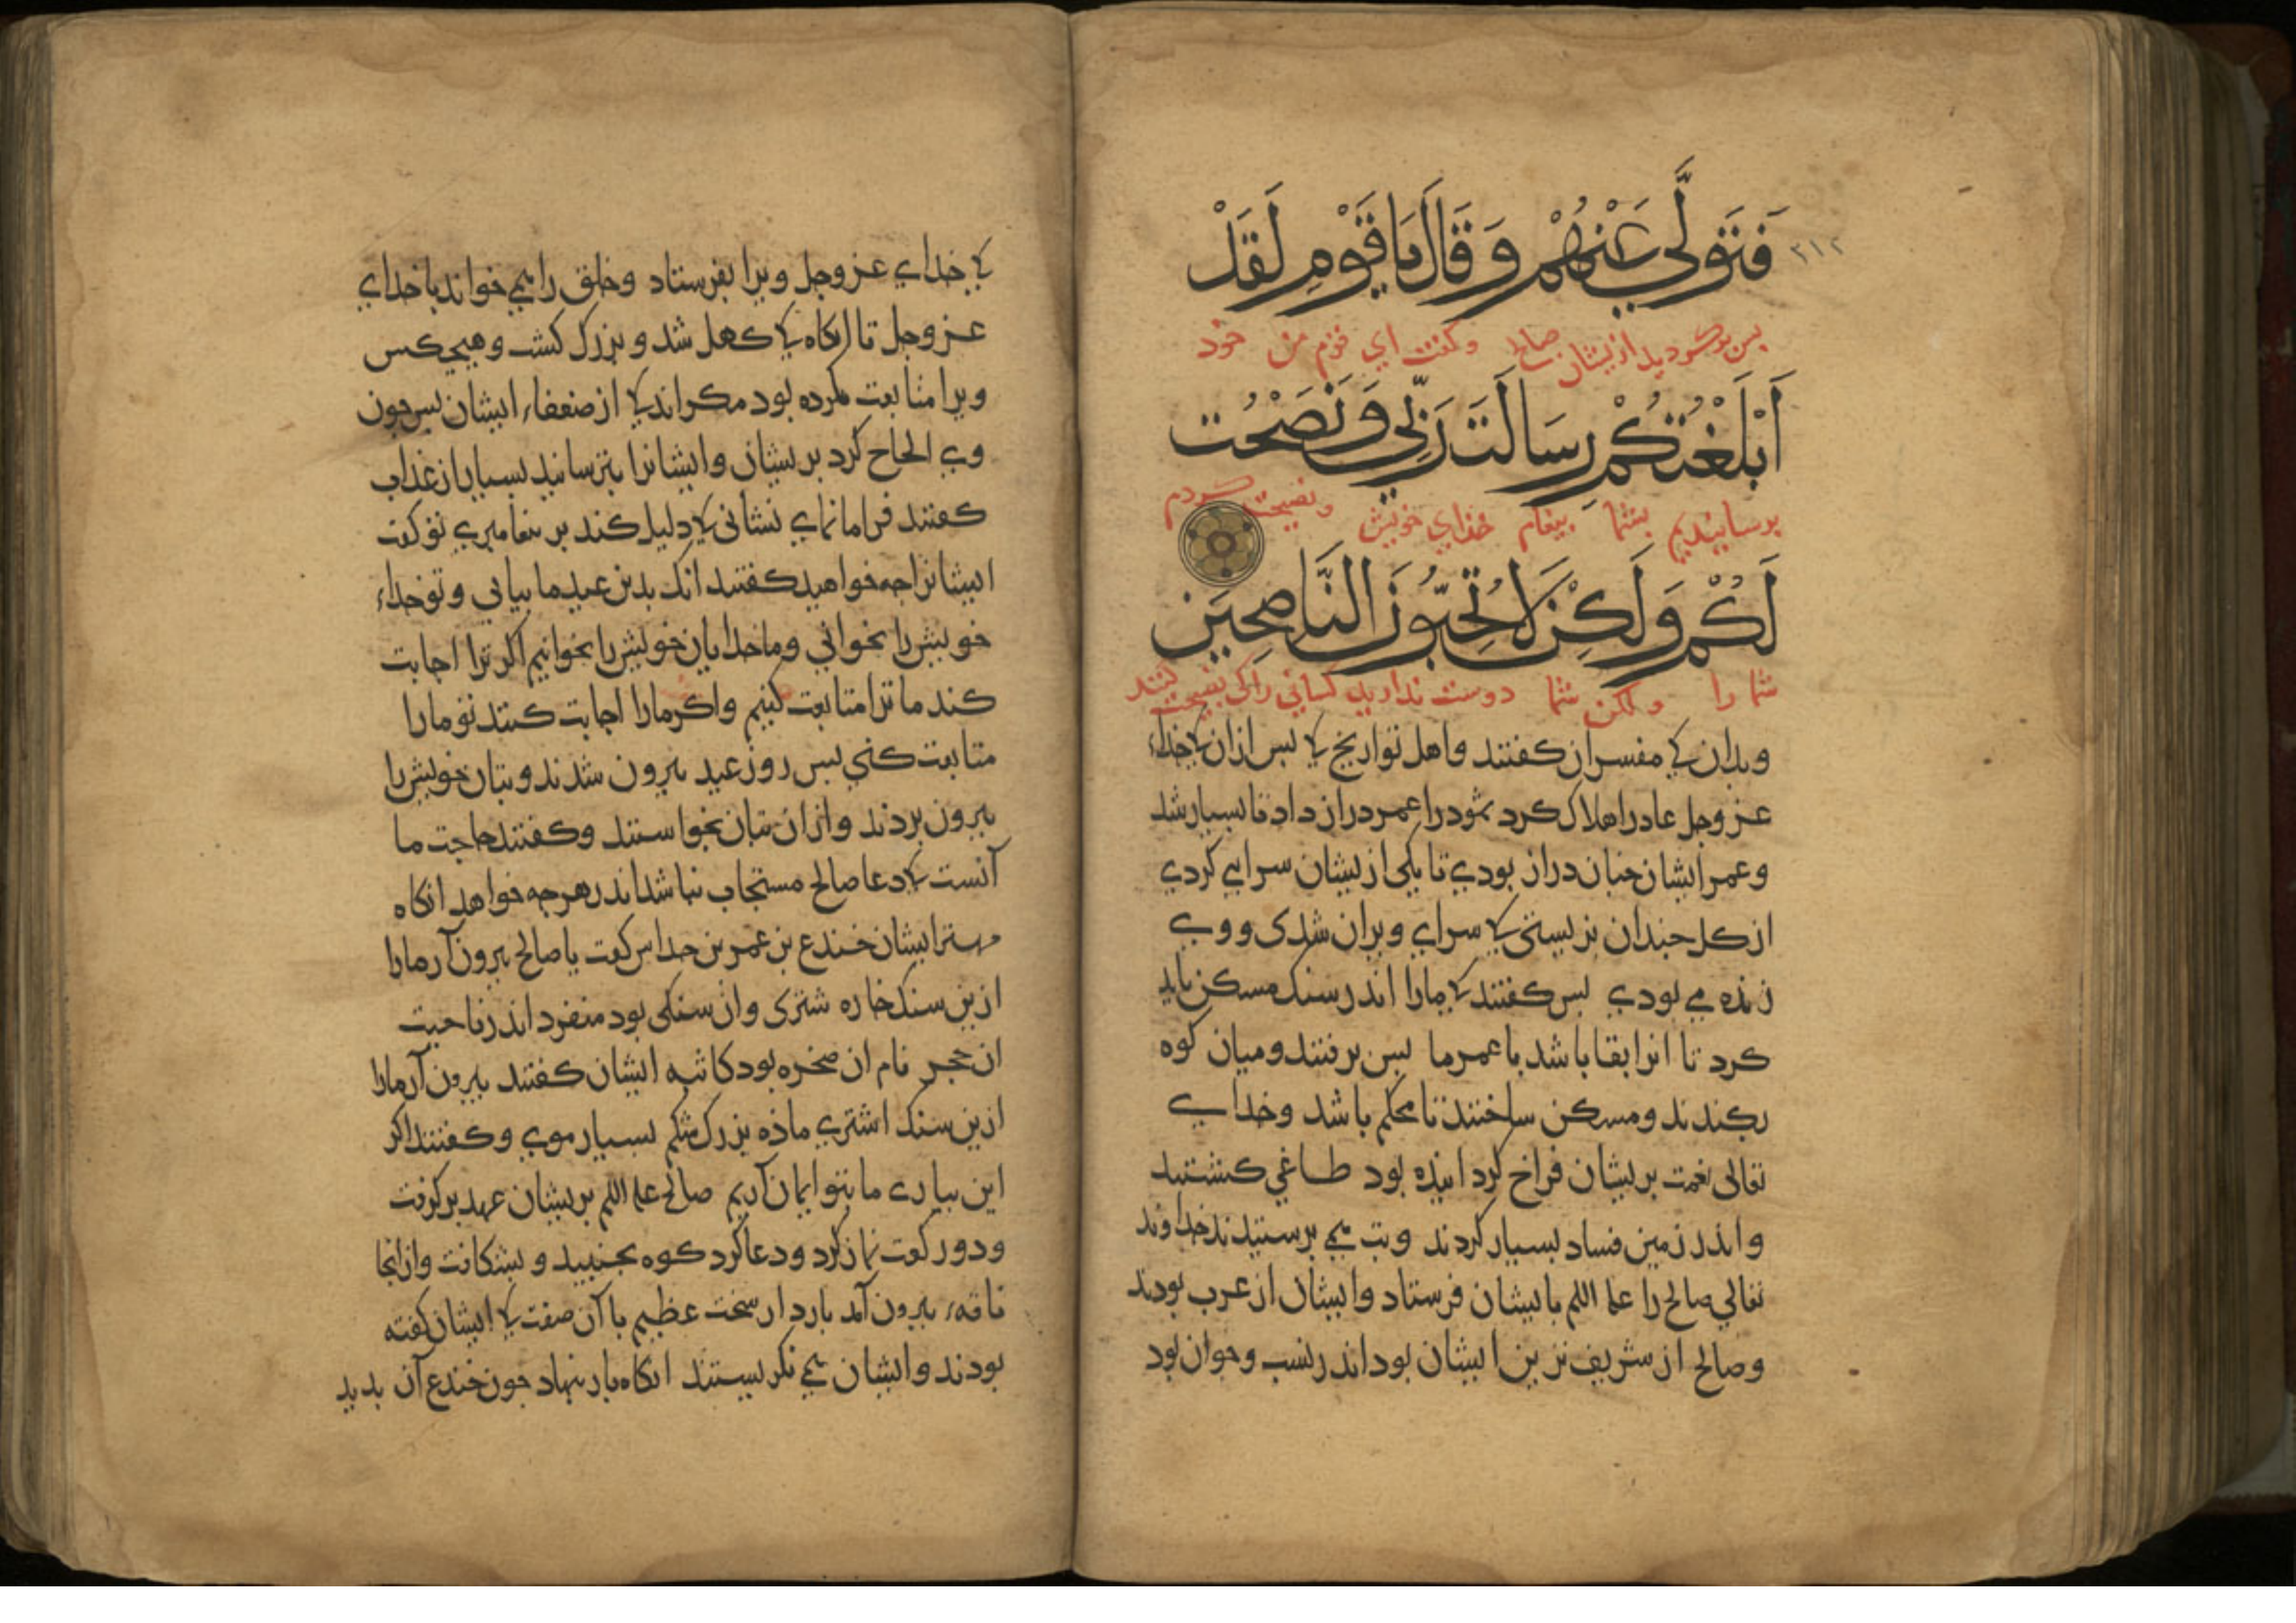 ٢١٢
فَتَوَلَّي عَنْهُمْ وَقَالَ يَا قَوْمِ لَقَدْ
پس برگردید ازیشان صالح و کفت ای قوم من خود
أَبْلَغْتُكُمْ رِسَالَتَ رَبِّي وَنَصَحْت
برسانیدیم بشما پیغام خدای خویش و نصیحت کردم
لَكُمْ وَلَكِنْ لَا تُحِبُّونَ النَّاصِحِينَ
شما را ولکن شما دوست ندارید کسانی را کی نصیحت کنند
وبدان کی مفسران کفتند واهل تواریخ کی بس ازان کی خداء
عزوجل عاد را هلاک کرد ثمود را عمر دراز داد تا بسیار شد
وعمر ایشان جنان دراز بودی تا یکی ازیشان سرایی کردی
از کل جندان بزیستی کی سرای ویران شدی و وی
زنده می بودی بس کفتند کی مارا اندر سنک مسکن باید
کرد تا انرا بقا باشد با عمر ما بس برفتند ومیان کوه
بکندند ومسکن ساختند تا محکم باشد وخدای
تعالی نعمت بریشان فراخ کرد انیده بود طاغی کشتند
واندر زمین فساد بسیار کردند وبت می برستیدند خداوند
تعالی صالح را علیه السلم بایشان فرستاد وایشان از عرب بودند
وصالح از شریف ترین ایشان بود اندر نسب وجوان بود
کی خدای عزوجل ویرا بفرستاد وخلق را می خواند با خدای
عزوجل تا انکاه کی کهل شد و بزرک کشت وهیچ کس
ویرا متابعت نکرده بود مکر اندکی از ضعفاء ایشان بس جون
وی الحاح کرد بریشان وایشانرا بترسانید بسیار از عذاب
کفتند فرا ما نمای نشانی کی دلیل کند بر بیغامبری تو کفت
ایشانرا جه خواهید کفتند انک بدین عید ما بیایی وتو خداء
خویش را بخوانی وما خدایان خویش را بخوانیم اکر ترا اجابت
کند ما ترا متابعت کنیم واکر مارا اجابت کنند تو مارا
متابعت کنی بس روز عید بیرون شدند وبتان خویش را
بیرون بردند وازان بتان بخواستند وکفتند حاجت ما
آنست کی دعا صالح مستجاب نباشد اندر هرجه خواهد انکاه
مهتر ایشان خندع بن عمر بن حداس کفت یا صالح بیرون آر مارا
ازین سنک خاره شتری وان سنکی بود منفرد اندر ناحیت
ان حجر نام ان صخره بود کاثبه ایشان کفتند بیرون آر مارا
ازین سنک اشتری ماذه بزرک شکم بسیار موی وکفتند اکر
این بیاری ما بتو ایمان آریم صالح علیه السلم بریشان عهد برکرفت
ودو رکعت نماز کرد ودعا کرد کوه بجنبید وبشکافت وازانجا
ناقهء بیرون آمد باردار سخت عظیم با آن صفت کی ایشان کفته
بودند وایشان می نکریستند انکاه بار بنهاد جون خندع آن بدید